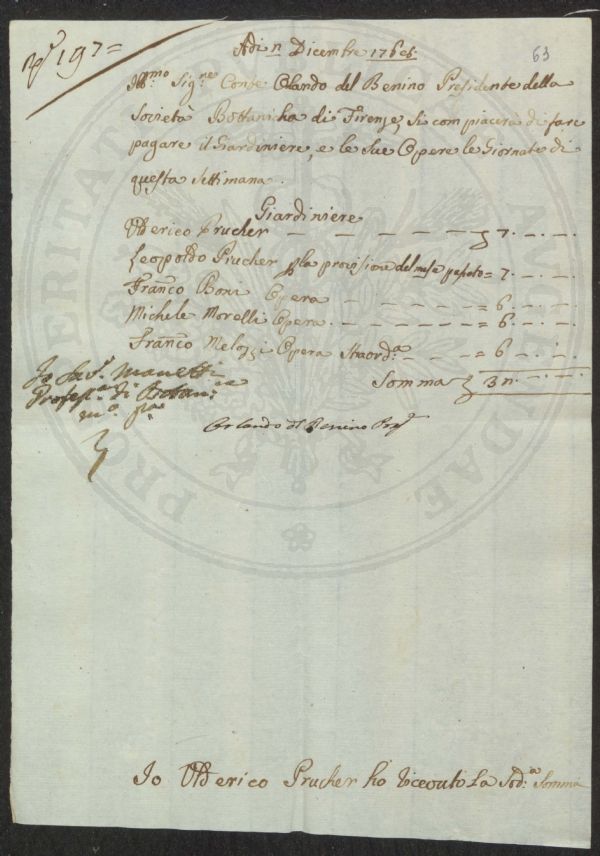 N.º 197=
63
Adi 11 Dicembre 1766
Ill:mo Sig:re Conte Orlando del Benino Presidente della
Società Bottanicha di Firenze, si compiacerà di fare
pagare il Giardiniere, e le sue Opere le Giornate di
questa Settimana.
Giardiniere
Ulderico Prucher — — — — £ 7. — . —
Leopoldo Prucher p la provisione del mese passato = 7. — . —
Franco Boni Opera — — — — = 6 — . —
Michele Morelli Opera. — — — — = 6 — . —
Franco Melozzi Opera Straord:a — — = 6 — . —
Somma £ 32. — . —
Io Sav.r Manetti
Profess.e di Botan.ca
m.o p.a
Orlando del Benino Pres.
Io Ulderico Prucher ho riceuto La Sod:a Somma